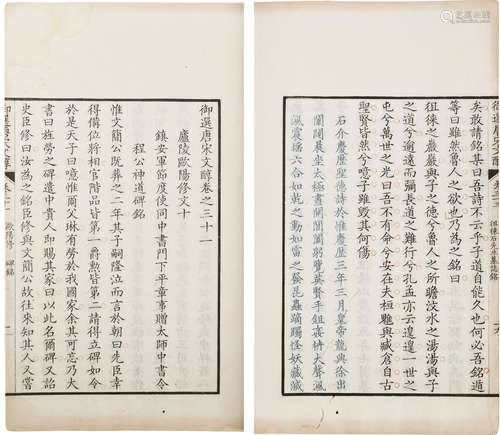 矣敢請銘某曰吾詩不云乎子道自能久也何必吾銘遁
等曰雖然魯人之欲也乃為之銘曰
徂徠之巖巖與子之德兮魯人之所瞻汶水之湯湯與子
之道兮逾遠而彌長道之難行兮孔孟亦云遑遑一世之
屯兮萬世之光曰吾不有命兮安在夫桓魋與臧倉自古
聖賢皆然兮噫子雖毀其何傷
石介慶歷聖德詩於惟慶歷三年三月皇帝龍興徐出
闈闥晨坐太極晝開閶闔躬覽英賢手鉏姦枿大聲渢
渢震搖六合如乾之動如雷之發昆蟲蹢躅怪妖藏滅
徂徠石先生墓誌銘
御選唐宋文醇卷之三十一
廬陵歐陽修文十
鎮安軍節度使同中書門下平章事贈太師中書令
程公神道碑銘
惟文簡公既葬之二年其子嗣隆泣而言於朝曰先臣幸
得備位將相官階品皆第一爵勲皆第二請得立碑如令
於是天子曰噫惟爾父琳有勞於我國家余其可忘乃大
書曰旌勞之碑遣中貴人即賜其家曰以此名爾碑又詔
史臣修曰汝為之銘臣修與文簡公故往來知其人又嘗
歐陽修 碑銘 一